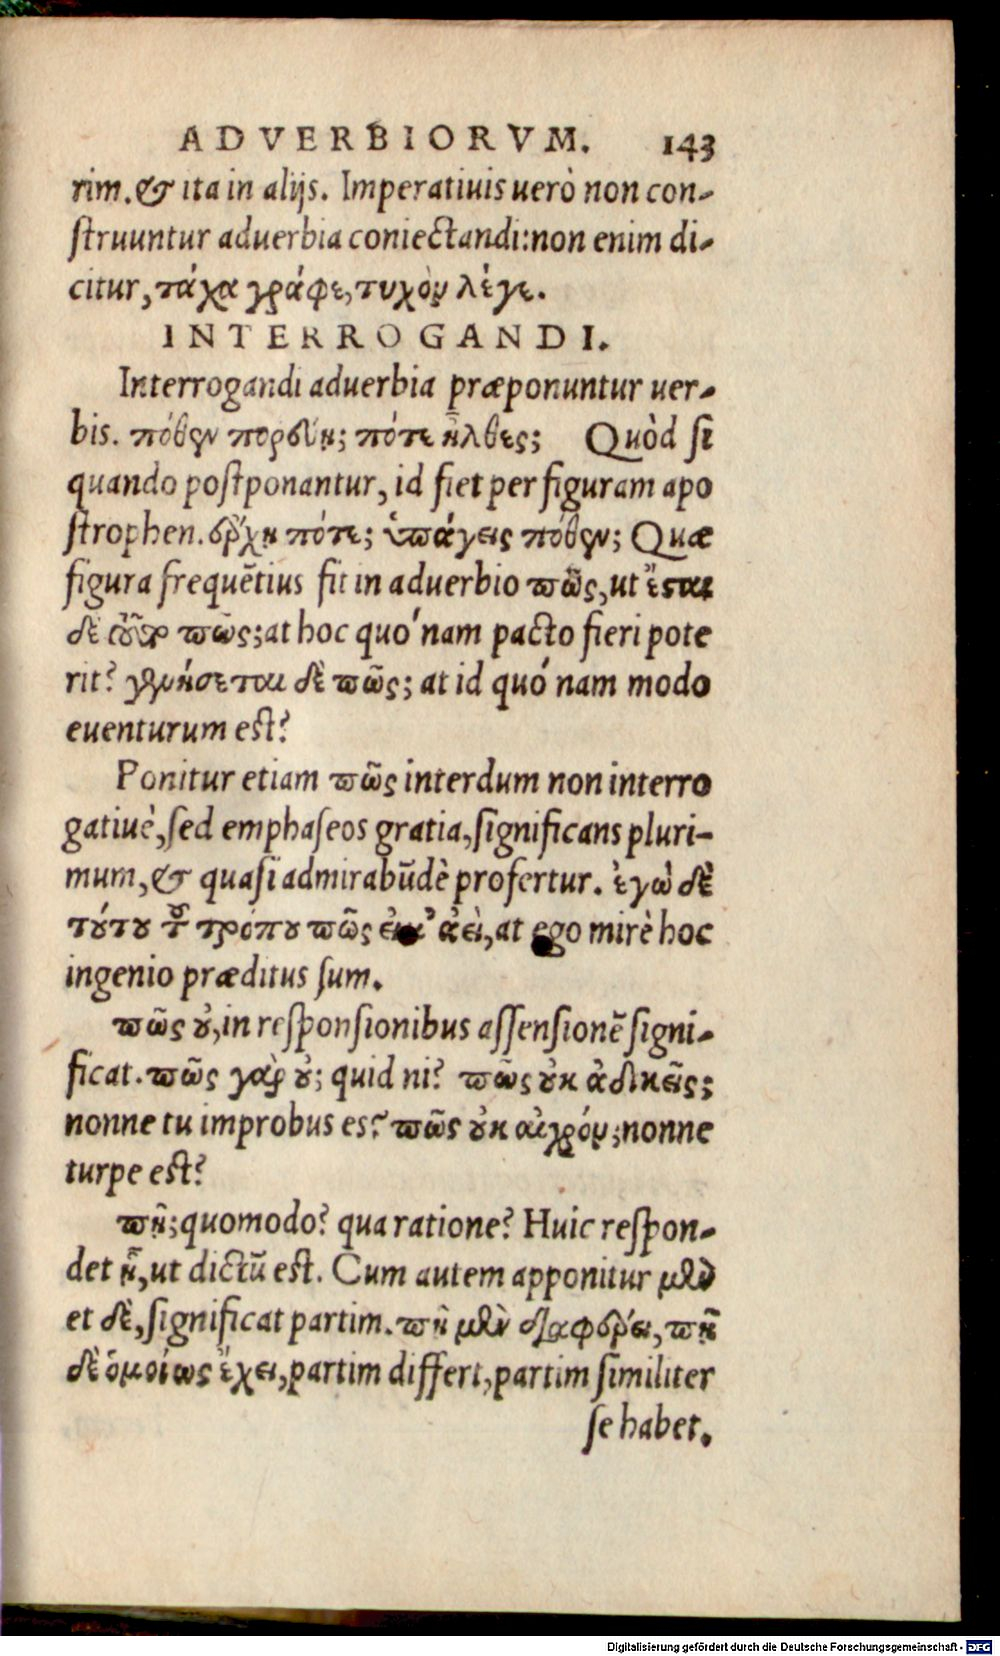 ADVERBIORVM. 143
rim. & ita in alijs. Imperatiuis uerò non con-
ſtruuntur aduerbia coniectandi: non enim di-
citur, τάχα γράφε, τυχὸν λέγε.
INTERROGANDI.
Interrogandi aduerbia præponuntur uer-
bis. πόθεν πορεύῃ; πότε ἦλθες; Quòd ſi
quando poſtponantur, id fiet per figuram apo
ſtrophen. ἔρχῃ πότε; ὑπάγεις πόθεν; Quæ
figura frequẽtius fit in aduerbio πῶς, ut ἔσται
δὲ οὖν πῶς; at hoc quó nam pacto fieri pote
rit? γενήσεται δὲ πῶς; at id quó nam modo
euenturum est?
Ponitur etiam πῶς interdum non interro
gatiuè, ſed emphaſeos gratia, ſignificans pluri-
mum, & quaſi admirabũdè profertur. ἐγὼ δὲ
τούτου τοῦ τρόπου πῶς εἰμ' ἀεὶ, at ego mirè hoc
ingenio præditus ſum.
πῶς οὐ, in reſponſionibus aſſenſionẽ ſigni-
ficat. πῶς γὰρ οὐ; quid ni? πῶς οὐκ ἀδικεῖς;
nonne tu improbus es? πῶς οὐκ αἰσχρόν; nonne
turpe est?
πῆ; quomodo? qua ratione? Huic reſpon-
det ᾗ, ut dictũ est. Cum autem apponitur μὲν
et δὲ, ſignificat partim. πῆ μὲν διαφέρει, πῆ
δὲ ὁμοίως ἔχει, partim differt, partim ſimiliter
ſe habet.
Digitalisierung gefördert durch die Deutsche Forschungsgemeinschaft - DFG